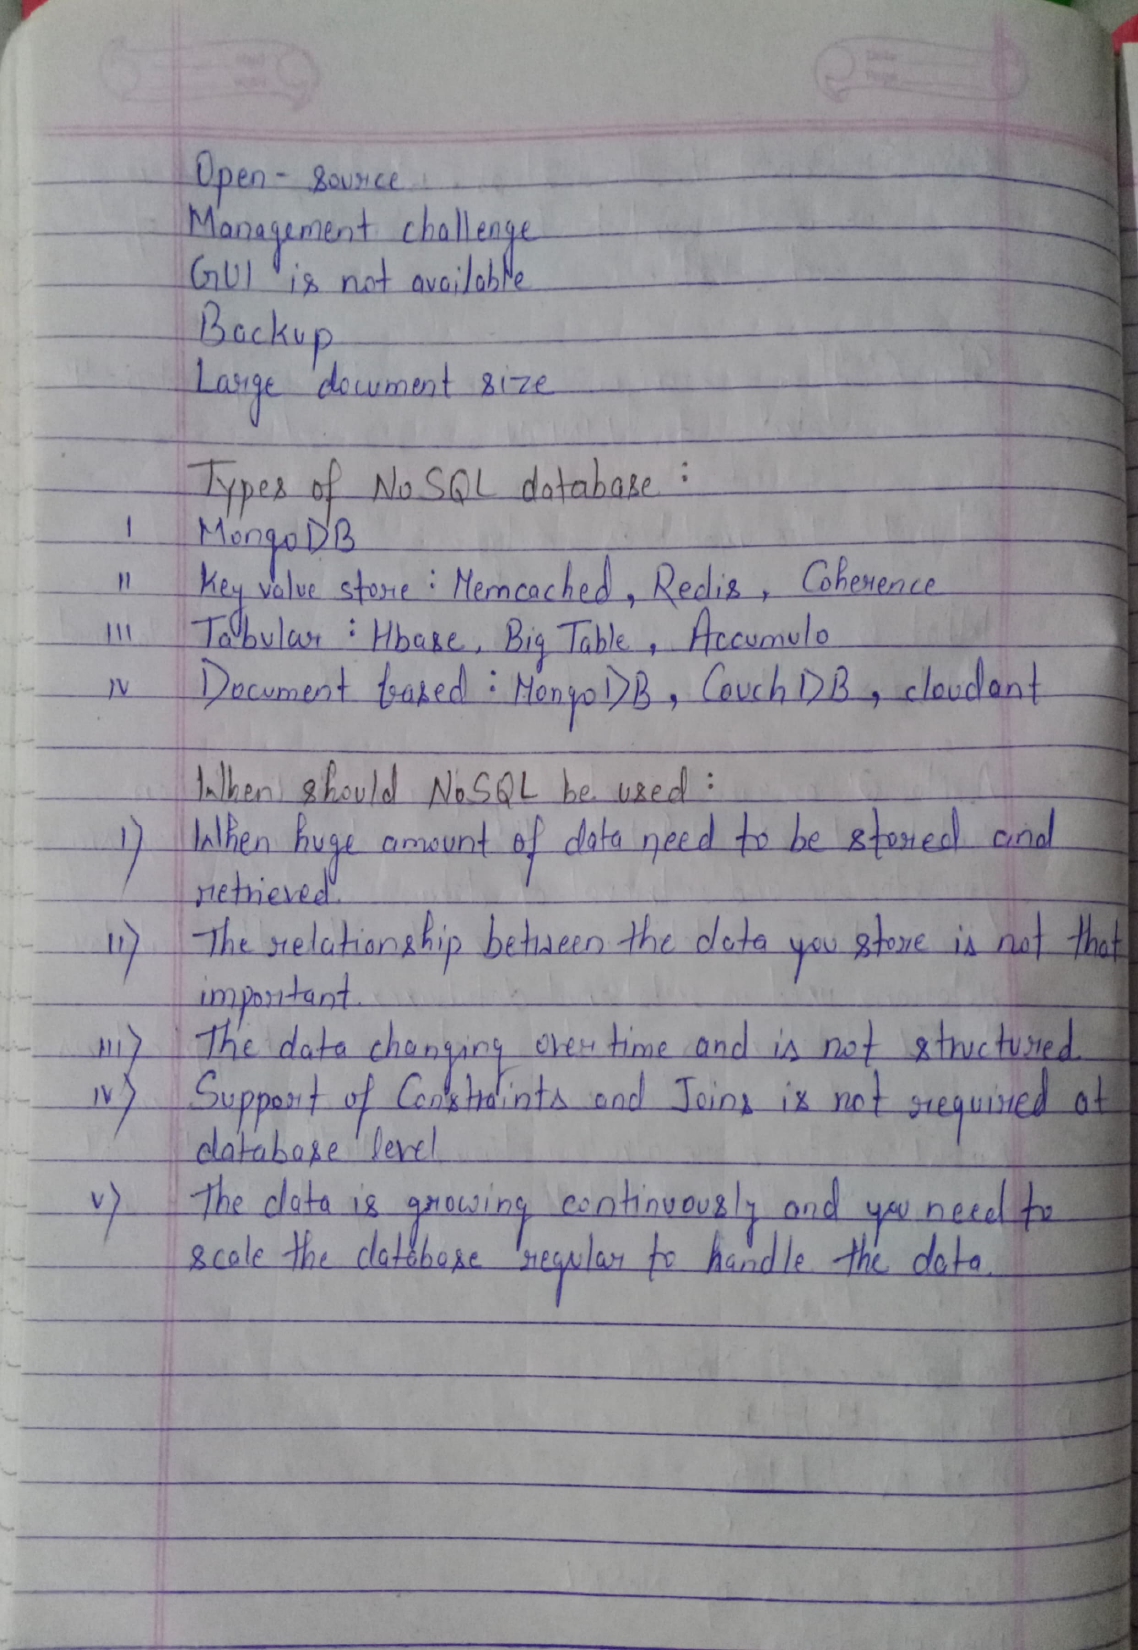 Open - source
Management challenge
GUI is not available
Backup
Large document size
Types of NoSQL database :
I MongoDB
II Key value store : Memcached, Redis, Coherence
III Tabular : Hbase, Big Table, Accumulo
IV Document based : MongoDB, CouchDB, cloudant
When should NoSQL be used :
I) When huge amount of data need to be stored and
retrieved.
II) The relationship between the data you store is not that
important.
III) The data changing over time and is not structured.
IV) Support of Constraints and Joins is not required at
database level
V) The data is growing continuously and you need to
scale the database regular to handle the data.